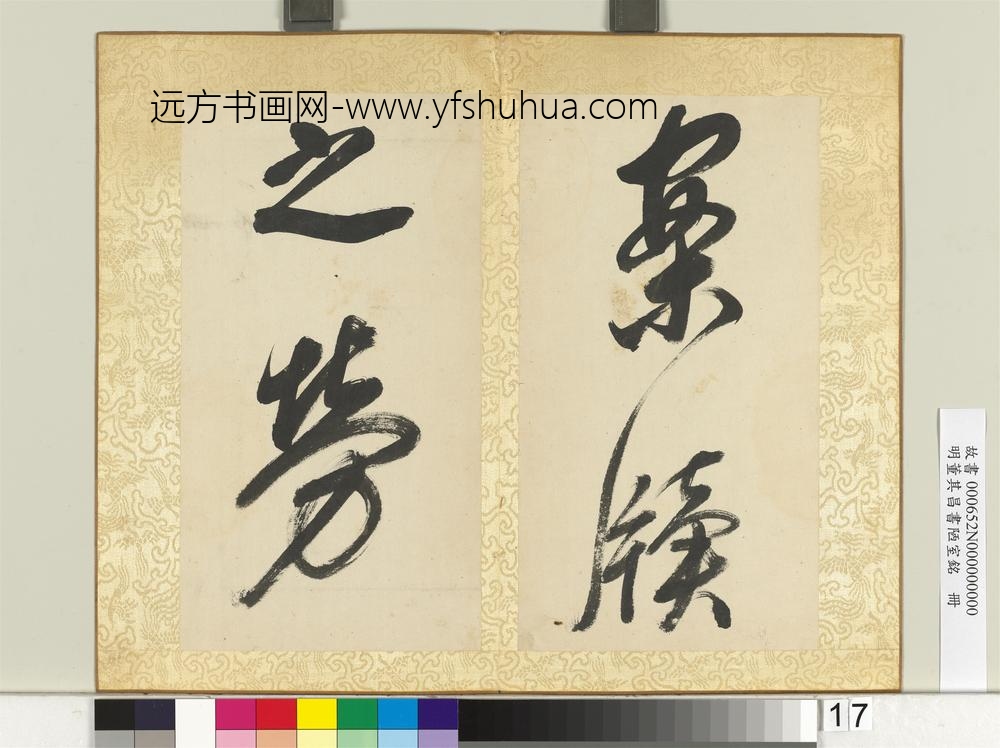 远方书画网-www.yfshuhua.com
案牘
之勞
故書 000652N000000000
明董其昌書陋室銘 冊
17